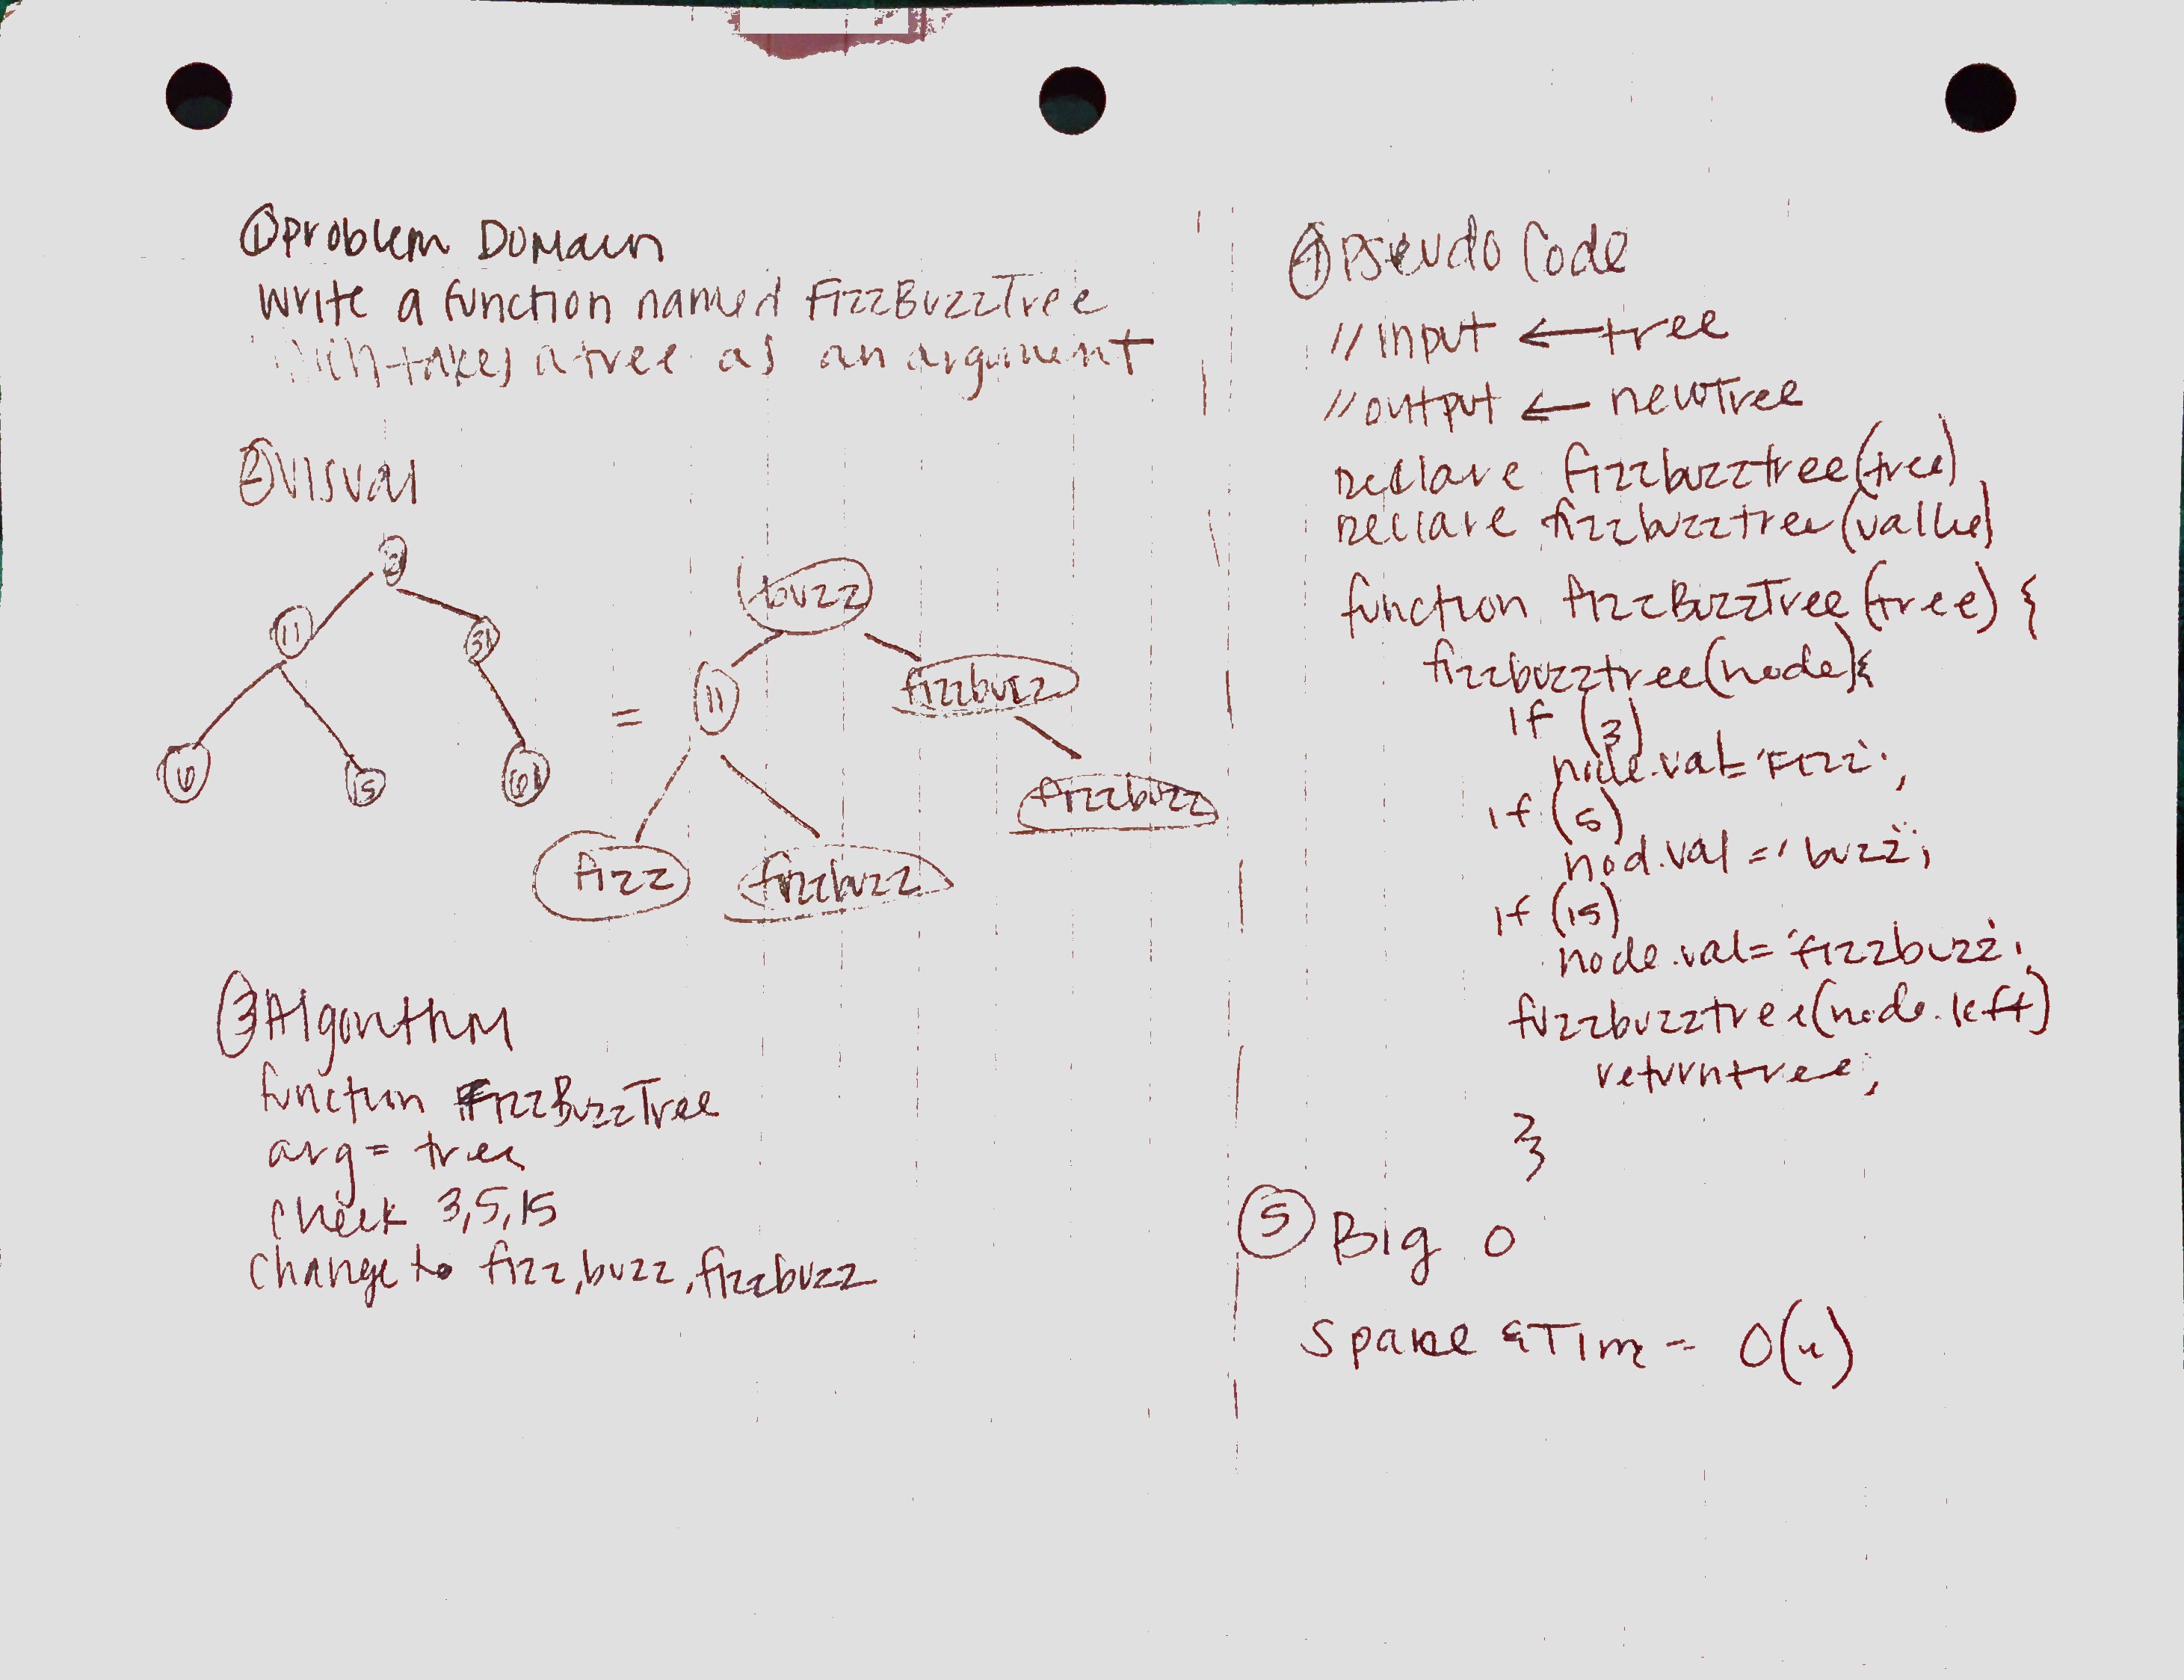 ① Problem Domain
Write a function named FizzBuzzTree
takes a tree as an argument
② Visual
11
3
15
=
buzz
11
fizzbuzz
fizzbuzz
fizz
fizzbuzz
③ Algorithm
function FizzBuzzTree
arg = tree
check 3,5,15
change to fizz, buzz, fizzbuzz
④ Pseudo Code
// input ← tree
// output ← newTree
Declare fizzbuzztree(tree)
Declare fizzbuzztree(value)
function fizzBuzzTree(tree) {
fizzbuzztree(node){
if (3)
node.val = 'Fizz';
if (5)
nod.val = 'buzz';
if (15)
node.val = 'fizzbuzz';
fuzzbuzztree(node.left)
return tree;
}
}
⑤ Big O
Space & Time = O(n)